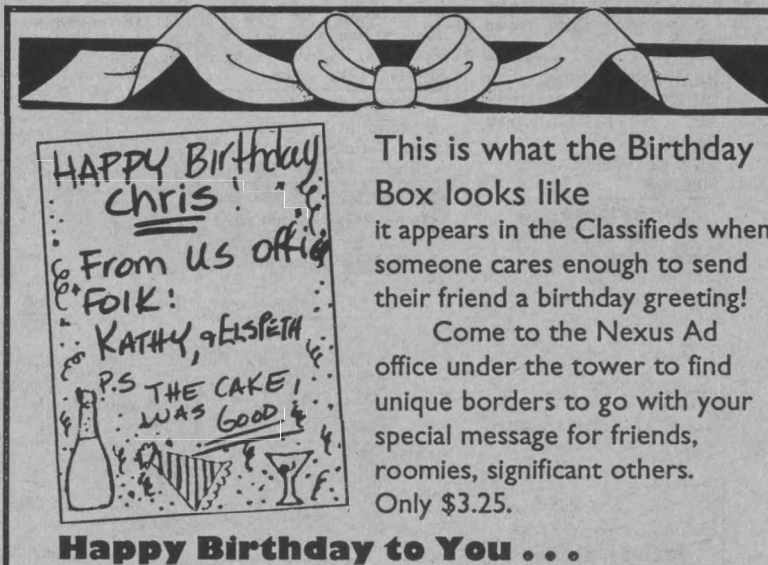 HAPPY Birthday
Chris!
From us office
FOlK:
KATHY, & ELSPETH
P.S THE CAKE,
WAS GOOD!
This is what the Birthday
Box looks like
it appears in the Classifieds when
someone cares enough to send
their friend a birthday greeting!
Come to the Nexus Ad
office under the tower to find
unique borders to go with your
special message for friends,
roomies, significant others.
Only $3.25.
Happy Birthday to You . . .